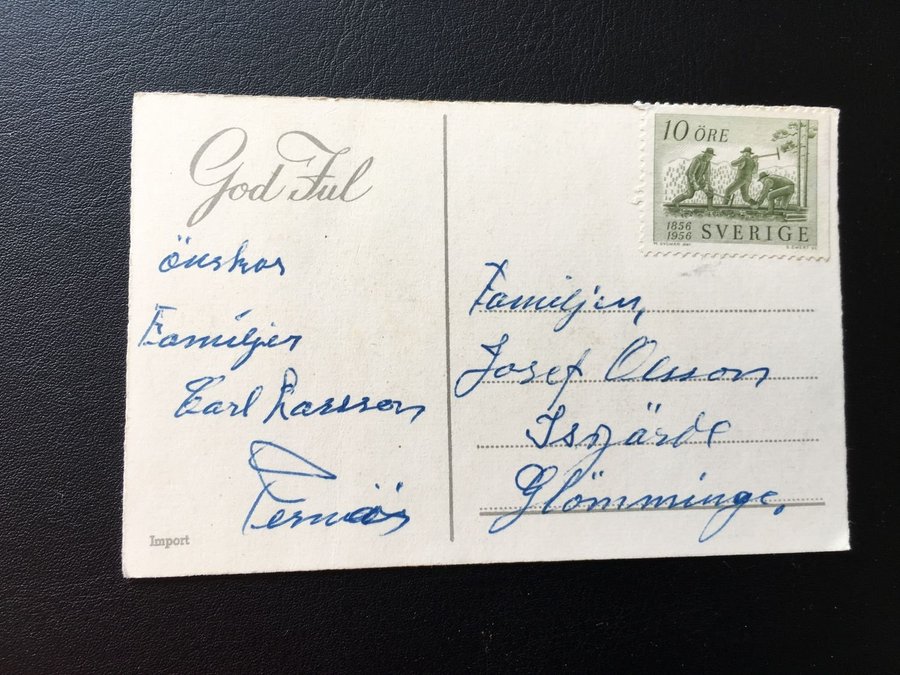 God Jul
önskar
Familjen
Carl Larsson
Import
10 ÖRE
1856
1956
SVERIGE
Familjen,
Josef Olsson
Isgärde
Glömminge,